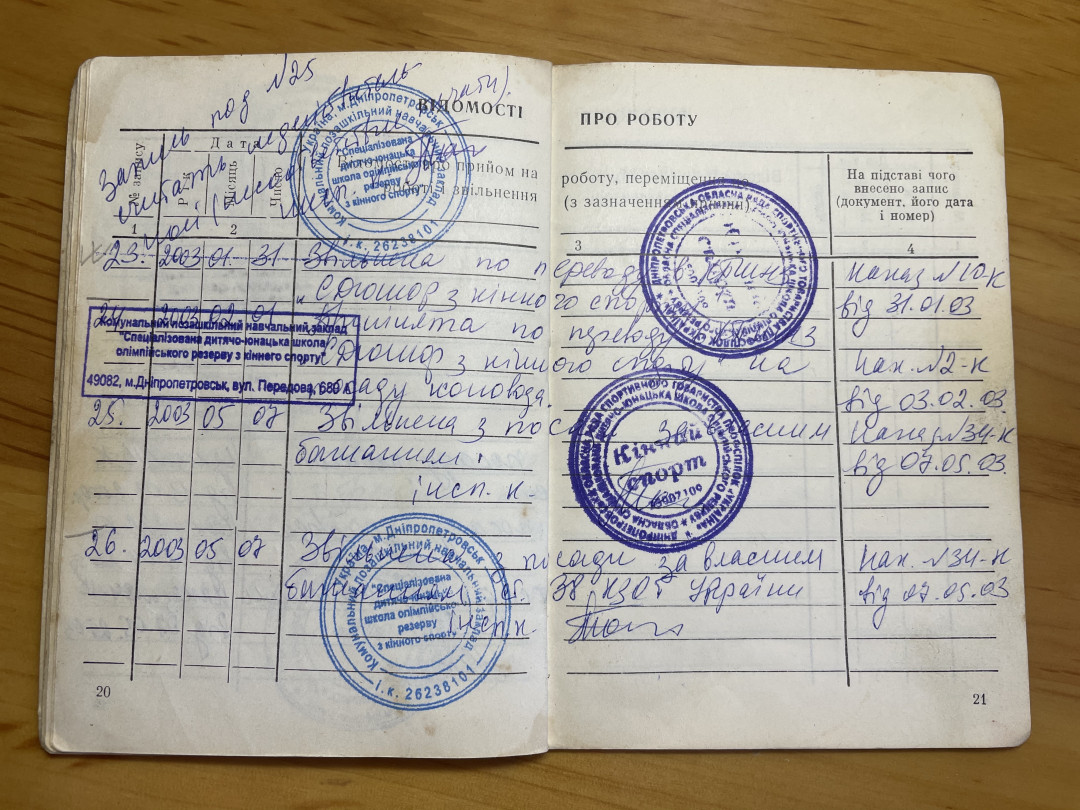 Запись под №25
считать недействитель
ной
ВІДОМОСТІ ПРО РОБОТУ
№ запису
Дата
Рік
Місяць
Число
прийом на роботу, переміщення
звільнення (з зазначенням
На підставі чого внесено запис (документ, його дата і номер)
1 2 3 4
23. 2003 01 31 Звільнена по переводу в наказ №10-к
"СДЮШОР з кінного від 31.01.03
24. 2003 02 01 Прийнята по переводу з нак. №2-к
СДЮШОР з кінного спорту" на
посаду коновода. від 03.02.03
25. 2003 05 07 Звільнена з за власним наказ №34-к
бажанням. від 07.05.03.
інсп. к.
26. 2003 05 07 Звільнена з посади за власним нак. №34-к
бажанням ст. 38 КЗОТ України від 07.05.03
інсп. к.
20
21
Україна, м.Дніпропетровськ
Комунальний позашкільний навчальний заклад
"Спеціалізована
дитячо-юнацька
школа олімпійського
резерву
з кінного спорту"
І.к. 26238101
Комунальний позашкільний навчальний заклад
"Спеціалізована дитячо-юнацька школа
олімпійського резерву з кінного спорту"
49082, м.Дніпропетровськ, вул. Передова, 689 А
Кінний
спорт
Україна, м.Дніпропетровськ
Комунальний позашкільний навчальний заклад
"Спеціалізована
дитячо-юнацька
школа олімпійсько
резерву
з кінного спорту
І.к. 26238101